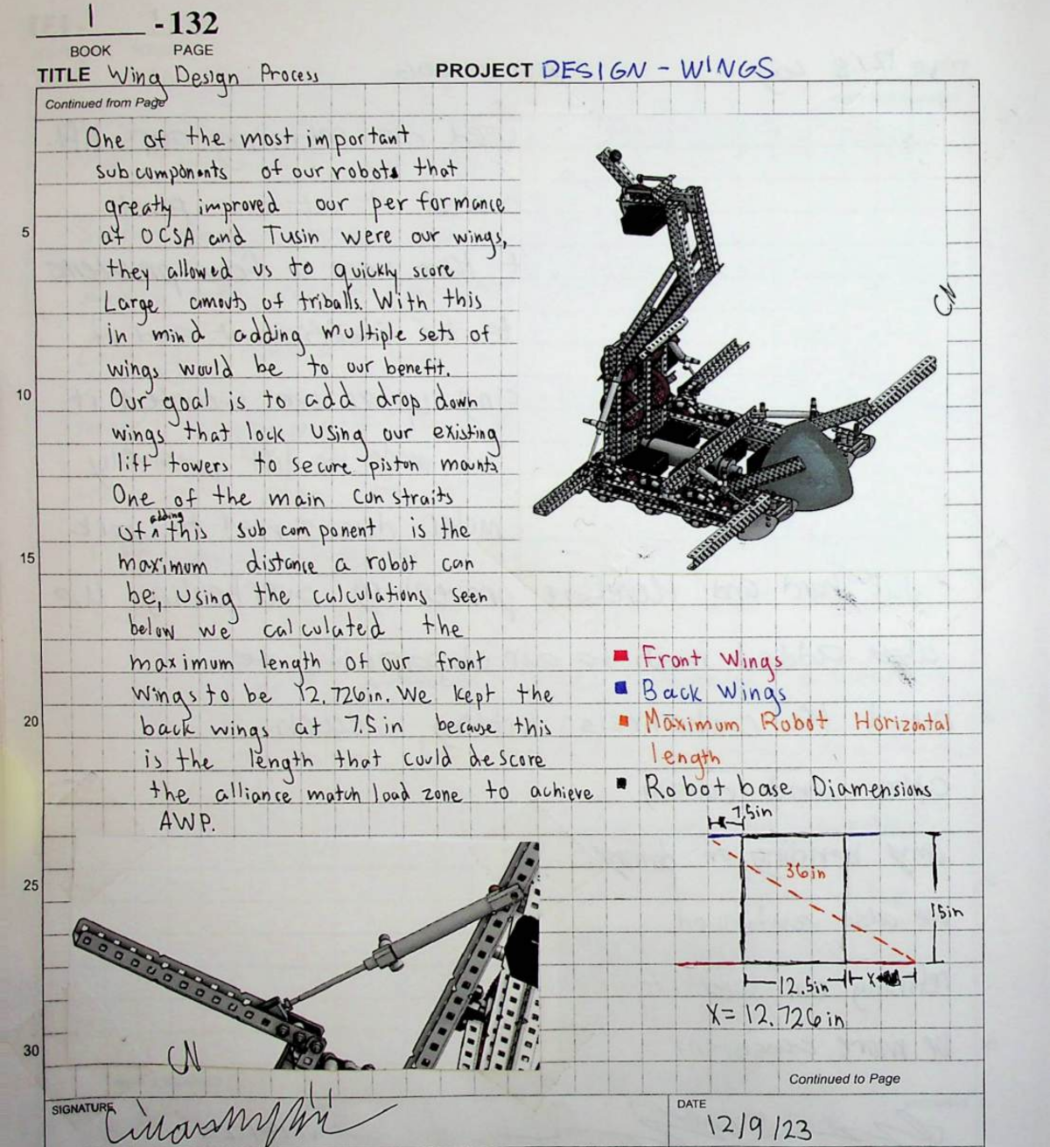 1 -132
BOOK PAGE
TITLE Wing Design Process PROJECT DESIGN - WINGS
Continued from Page
One of the most important
sub components of our robots that
greatly improved our performance
5 at OCSA and Tusin were our wings,
they allowed us to quickly score
Large amouts of triballs. With this
in mind adding multiple sets of
wings would be to our benefit.
10 Our goal is to add drop down
wings that lock using our existing
lift towers to secure piston mounts
One of the main constraits
of adding this sub component is the
15 maximum distance a robot can
be, using the calculations seen
below we calculated the
maximum length of our front
wings to be 12.726in. We kept the
20 back wings at 7.5in because this
is the length that could descore
the alliance match load zone to achieve
AWP.
CN
Front Wings
Back Wings
Maximum Robot Horizontal
length
Robot base Diamensions
7.5in
36in
15in
12.5in X
X= 12.726in
25
30
CN
Continued to Page
SIGNATURE
DATE
12/9/23